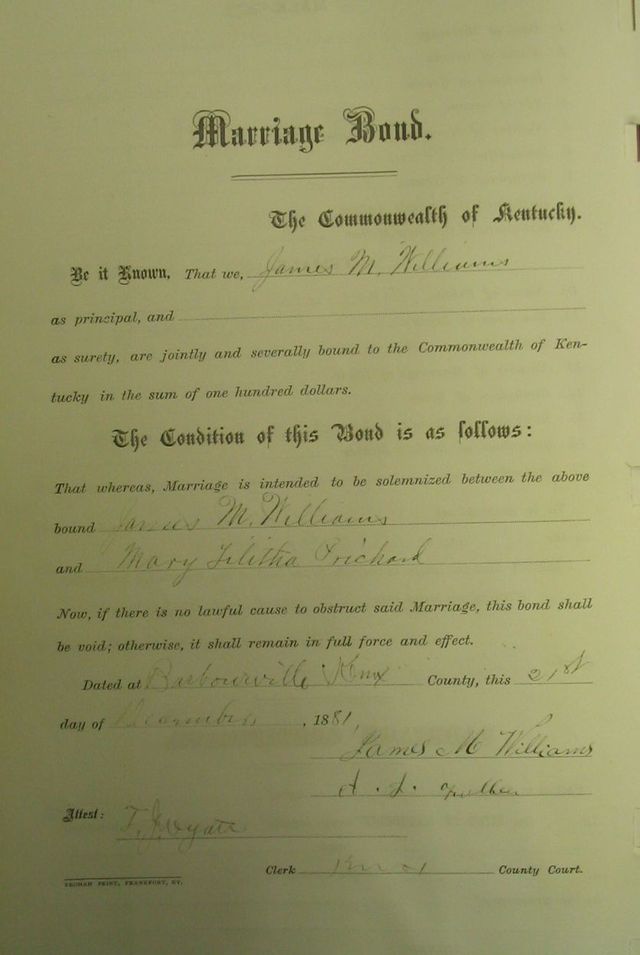 Marriage Bond.
The Commonwealth of Kentucky.
Be it Known, That we, James M. Williams
as principal, and
as surety, are jointly and severally bound to the Commonwealth of Ken-
tucky in the sum of one hundred dollars.
The Condition of this Bond is as follows:
That whereas, Marriage is intended to be solemnized between the above
bound James M. Williams
and Mary Prichard
Now, if there is no lawful cause to obstruct said Marriage, this bond shall
be void; otherwise, it shall remain in full force and effect.
Dated at Barbourville Knox County, this 21st
day of December, 1881,
James M Williams
Attest:
Clerk Knox County Court.
YEOMAN PRINT, FRANKFORT, KY.